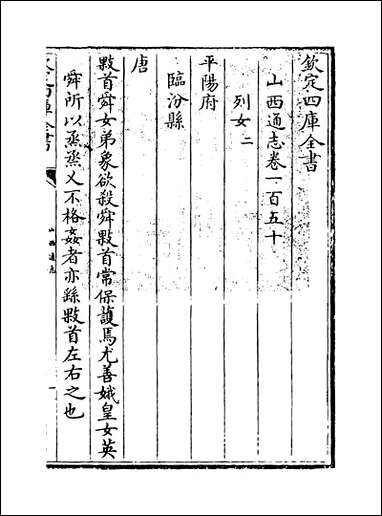 欽定四庫全書
山西通志卷一百五十
列女二
平陽府
臨汾縣
唐
敤首舜女弟象欲殺舜敤首常保護焉尤善娥皇女英
舜所以烝烝乂不格姦者亦繇敤首左右之也
山西通志